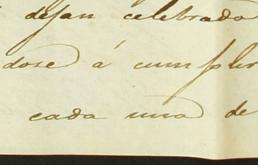 dejan celebrado
dose á cumplir
cada una de